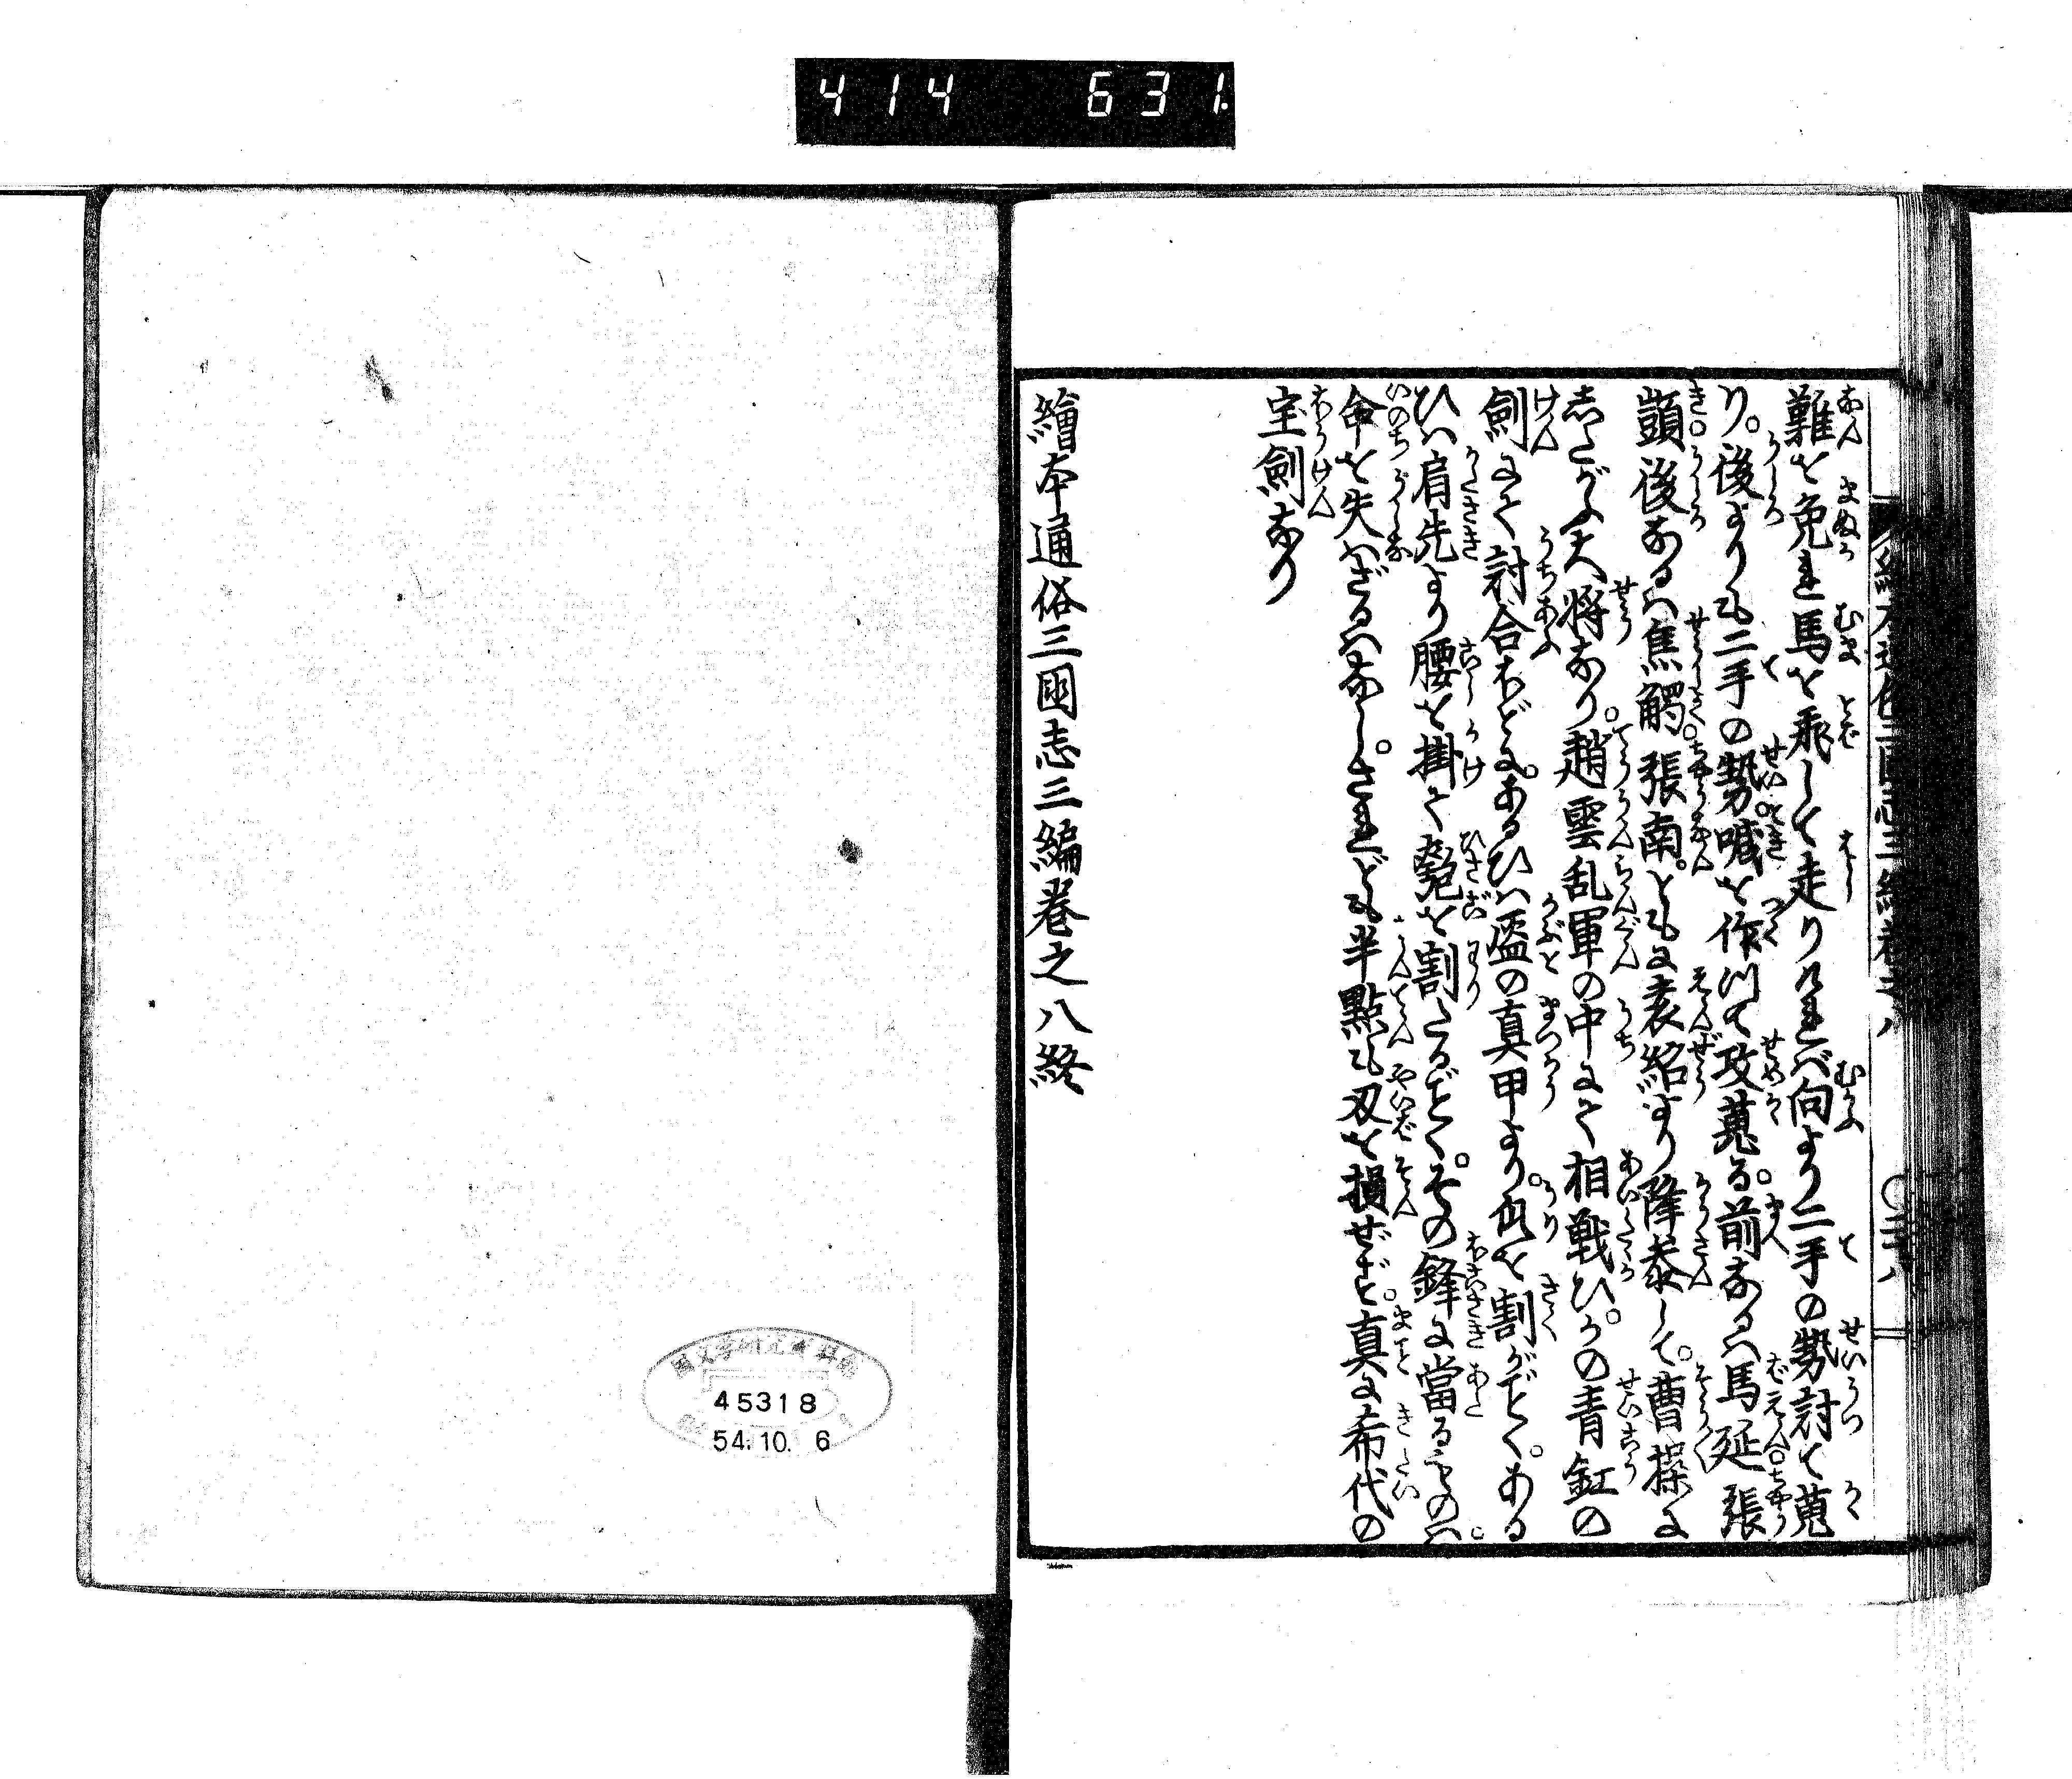 414 631
難を免れ馬を飛して走りければ向より二手の勢討て蒐
り。後よりも二手の勢喊を作つて攻蒐る。前なるハ馬延張
顗後なるハ焦觸張南。ともに袁紹より降参して。曹操に
したがふ大将なり。趙雲乱軍の中にて相戦ひ。かの青釭の
劍にて討合ほどに。あるひハ盔の真甲より。瓜を割がごとく。ある
ひハ肩先より腰を掛て甕を割たるごとく。その鋒に當るものハ。
命を失ハざるハなし。されども半點も刃を損ぜず。真に希代の
宝劍なり
繪本通俗三國志三編巻之八終
45318
54.10.6